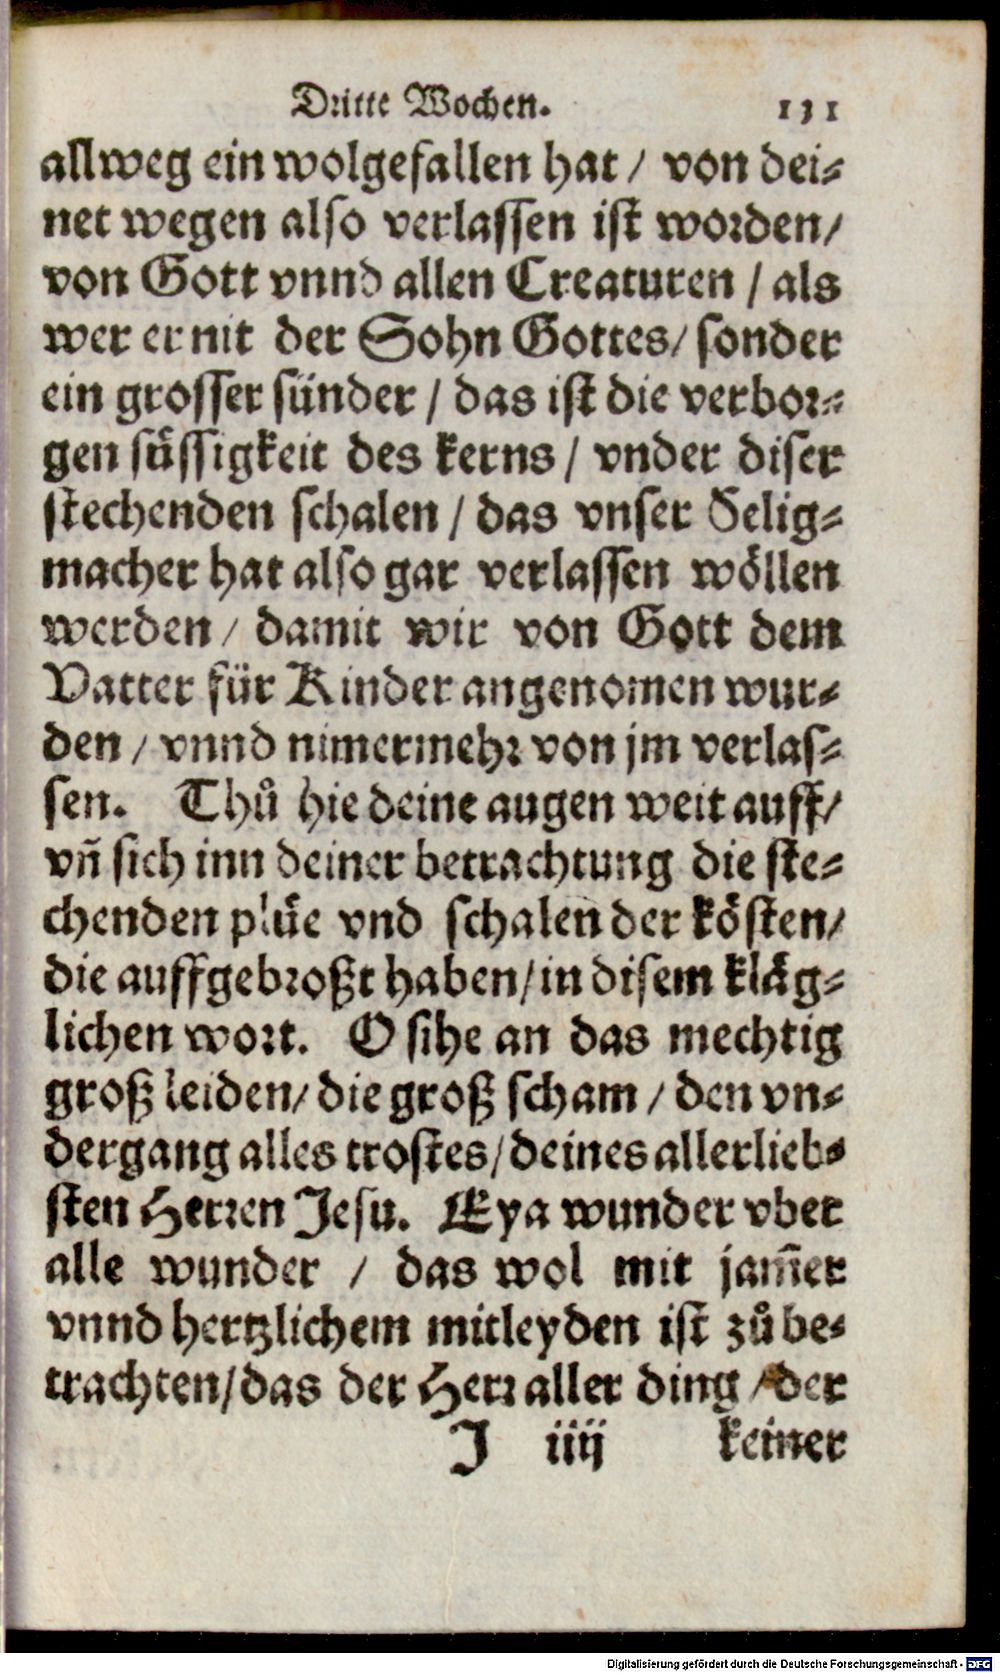 Dritte Wochen. 131
allweg ein wolgefallen hat / von dei-
net wegen also verlassen ist worden/
von Gott vnnd allen Creaturen / als
wer er nit der Sohn Gottes/ sonder
ein grosser sünder / das ist die verbor-
gen süssigkeit des kerns / vnder diser
stechenden schalen / das vnser Selig-
macher hat also gar verlassen wöllen
werden / damit wir von Gott dem
Vatter für Kinder angenomen wur-
den / vnnd nimermehr von jm verlas-
sen. Thů hie deine augen weit auff/
vñ sich inn deiner betrachtung die ste-
chenden plüe vnd schalen der kösten/
die auffgebroßt haben/ in disem kläg-
lichen wort. O sihe an das mechtig
groß leiden/ die groß scham / den vn-
dergang alles trostes/ deines allerlieb-
sten Herren Jesu. Eya wunder vber
alle wunder / das wol mit jam̃er
vnnd hertzlichem mitleyden ist zů be-
trachten/ das der Herr aller ding / der
J iiij keiner
Digitalisierung gefördert durch die Deutsche Forschungsgemeinschaft - DFG